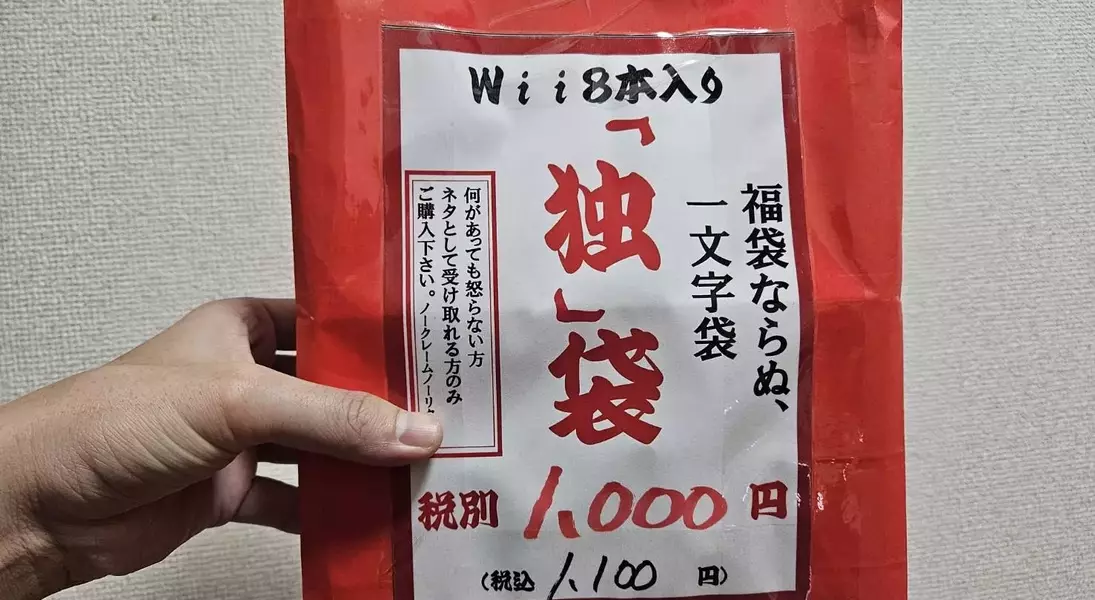 Wii8本入り
福袋ならぬ、
一文字袋
「独」袋
何があっても怒らない方
ネタとして受け取れる方のみ
ご購入下さい。ノークレームノーリ
税別 1,000 円
(税込 1,100 円)